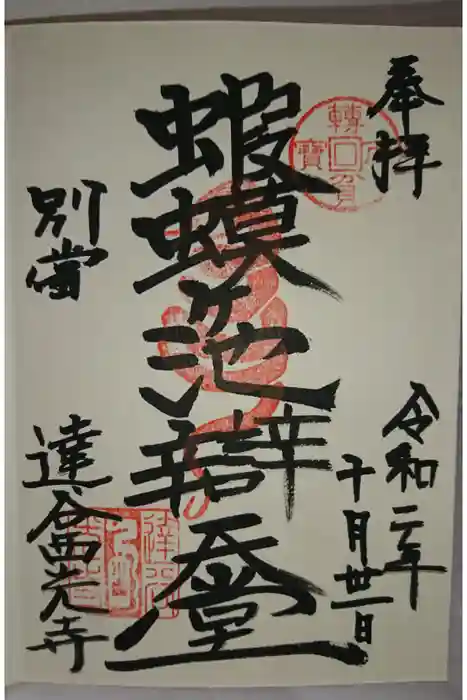 奉拝
令和二年
十月卅一日
蝦蟆ヶ池辯天堂
別當
達谷西光寺